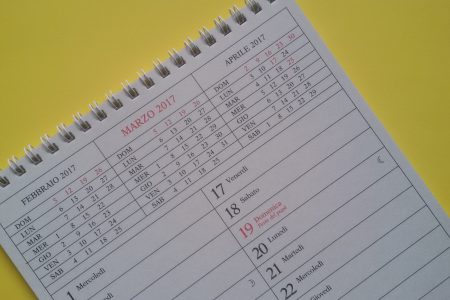 FEBBRAIO 2017
DOM 5 12 19 26
LUN 6 13 20 27
MAR 7 14 21 28
MER 1 8 15 22
GIO 2 9 16 23
VEN 3 10 17 24
SAB 4 11 18 25
MARZO 2017
DOM 5 12 19 26
LUN 6 13 20 27
MAR 7 14 21 28
MER 1 8 15 22 29
GIO 2 9 16 23 30
VEN 3 10 17 24 31
SAB 4 11 18 25
APRILE 2017
DOM 2 9 16 23 30
LUN 3 10 17 24
MAR 4 11 18 25
MER 5 12 19 26
GIO 6 13 20 27
VEN 7 14 21 28
SAB 1 8 15 22 29
1 Mercoledì
Giovedì
17 Venerdì
18 Sabato
19 Domenica
Festa del papà
20 Lunedì
21 Martedì
22 Mercoledì
Giovedì